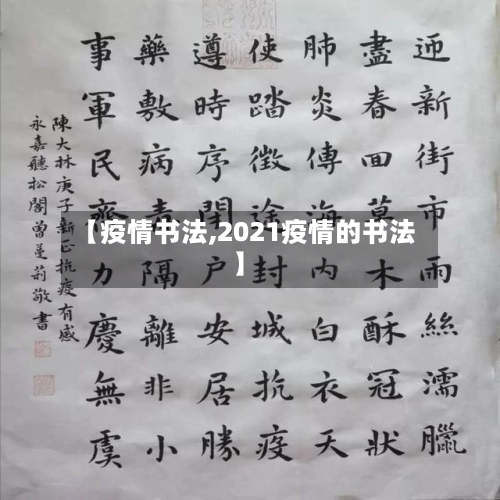 迎新街市雨絲濡臘
盡春回萬木酥冠狀
肺炎傳海内白衣天
使踏徵途封城抗疫
遵時序閉户安居勝
藥敷病毒隔離非小
事軍民齊力慶無虞
陳大林庚子新正抗疫有感
永嘉聽松閣曾曼莉敬書
【疫情书法,2021疫情的书法
】